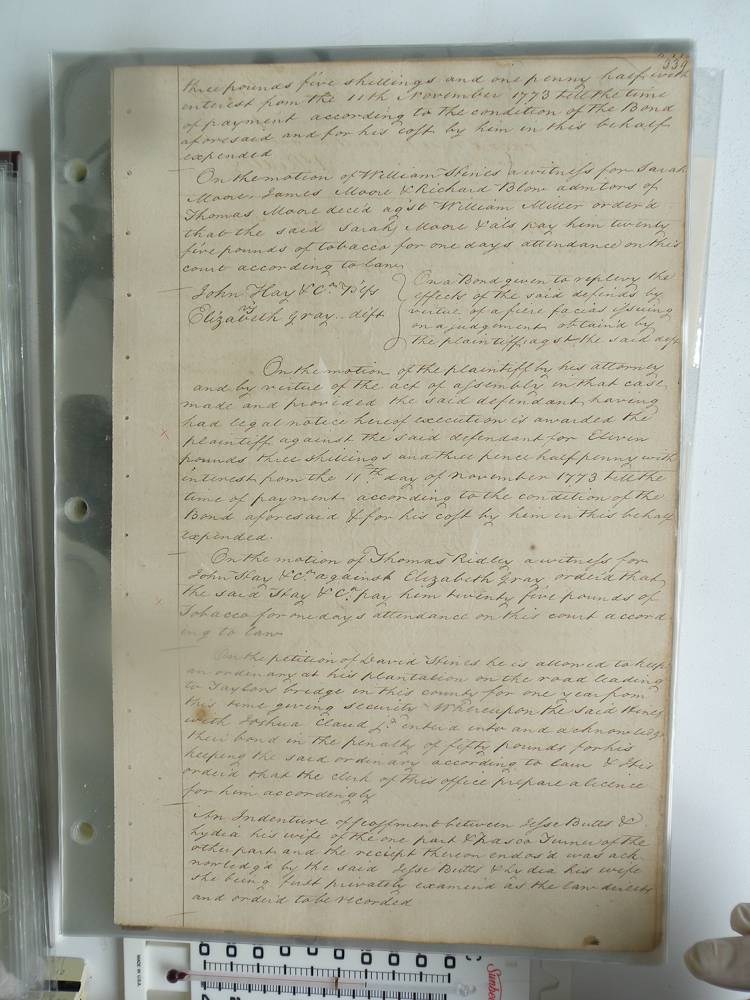 339
three pounds five shillings and one penny half with
interest from the 11th November 1773 till the time
of payment according to the condition of the Bond
aforesaid and for his cost by him in this behalf
expended
On the motion of William Hines a witness for Sarah
Moore James Moore & Richard Blow admtors of
Thomas Moore dec'd ag'st William Miller order'd
that the said Sarah Moore & als pay him twenty
five pounds of tobacco for one days attendance on this
court according to law
John Hay & Co. Plfs
Elizabeth Gray .. deft
On a Bond given to replevy the
effects of the said defend by
virtue of a fiere facias issuing
on a judgement obtain'd by
the plaintiff agst the said deft
On the motion of the plaintiff by his attorney
and by virtue of the act of assembly in that case
made and provided the said defendant having
had legal notice hereof execution is awarded the
plaintiff against the said defendant for Eleven
pounds three shillings and three pence half penny with
interest from the 11th day of November 1773 till the
time of payment according to the condition of the
Bond aforesaid & for his cost by him in this behalf
expended.
On the motion of Thomas Ridley a witness for
John Hay & Co. against Elizabeth Gray order'd that
the said Hay & Co. pay him twenty five pounds of
Tobacco for one days attendance on this court accord
ing to law
On the petition of David Hines he is allowed to keep
an ordinary at his plantation on the road leading
to Taylors bridge in this county for one year from
this time giving security Whereupon the said Hines
with Joshua Claud enter'd into and acknowledg'd
their bond in the penalty of fifty pounds for his
keeping the said ordinary according to law & it is
order'd that the clerk of this office prepare a licence
for him accordingly
An Indenture of feoffment between Jesse Butts &
Lydia his wife of the one part & Pasco Turner of the
other part and the reciept thereon endos'd was ack
nowledg'd by the said Jesse Butts & Lydia his wife
she being first privately examin'd as the law directs
and order'd to be recorded
MADE IN U.S.A.